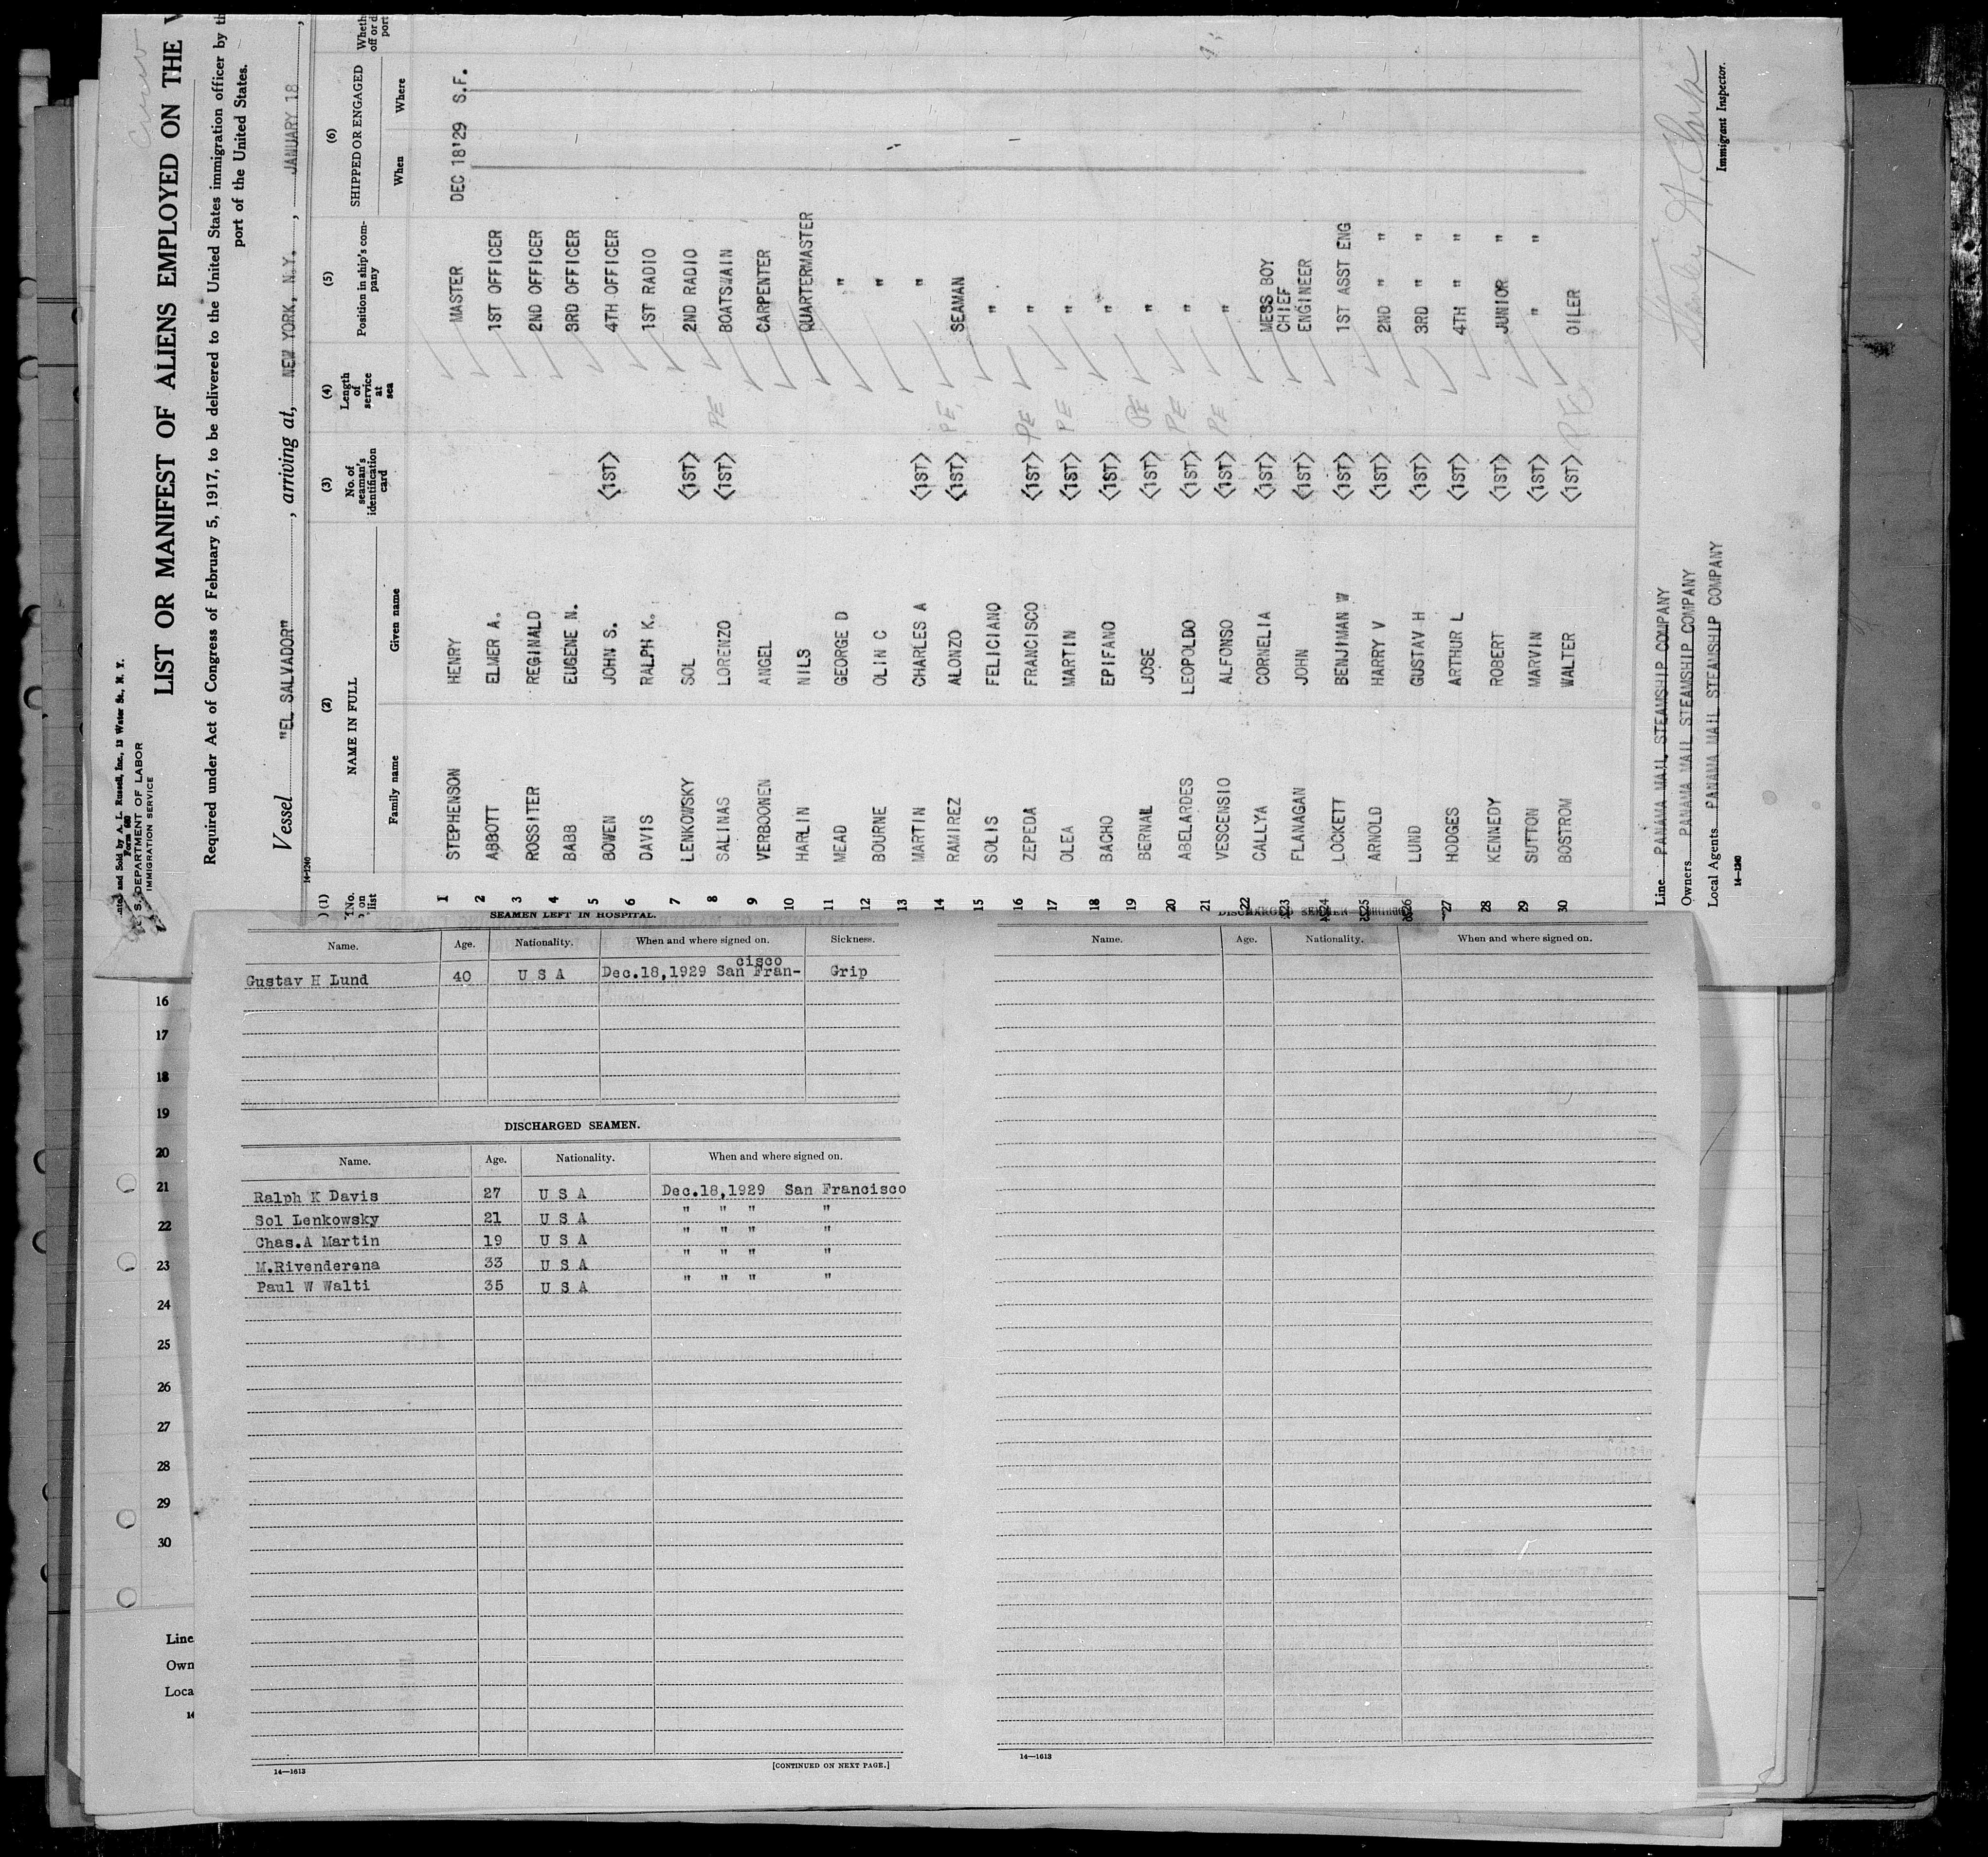 Crew
nted and Sold by A. L. Russell, Inc., 13 Water St., N. Y.
Form 680
S. DEPARTMENT OF LABOR
IMMIGRATION SERVICE
LIST OR MANIFEST OF ALIENS EMPLOYED ON THE
Required under Act of Congress of February 5, 1917, to be delivered to the United States immigration officer by th
port of the United States.
Vessel "EL SALVADOR", arriving at, NEW YORK, N.Y., JANUARY 18,
14-1240
(1) (2) (3) (4) (5) (6)
No. on list NAME IN FULL No. of seaman's identification card Length of service at sea Position in ship's company SHIPPED OR ENGAGED Wheth off or d port
Family name Given name When Where
1 STEPHENSON HENRY MASTER DEC 18'29 S.F.
2 ABBOTT ELMER A. 1ST OFFICER
3 ROSSITER REGINALD 2ND OFFICER
4 BABB EUGENE N. 3RD OFFICER
5 BOWEN JOHN S. <1ST> 4TH OFFICER
6 DAVIS RALPH K. 1ST RADIO
7 LENKOWSKY SOL <1ST> 2ND RADIO
8 SALINAS LORENZO <1ST> PE BOATSWAIN
9 VERBOONEN ANGEL CARPENTER
10 HARLIN NILS QUARTERMASTER
11 MEAD GEORGE D "
12 BOURNE OLIN C "
13 MARTIN CHARLES A <1ST> "
14 RAMIREZ ALONZO <1ST> PE SEAMAN
15 SOLIS FELICIANO "
16 ZEPEDA FRANCISCO <1ST> PE "
17 OLEA MARTIN <1ST> PE "
18 BACHO EPIFANO <1ST> "
19 BERNAL JOSE <1ST> PE "
20 ABELARDES LEOPOLDO <1ST> PE "
21 VESCENSIO ALFONSO <1ST> PE "
22 CALLYA CORNELIA <1ST> MESS BOY
23 FLANAGAN JOHN <1ST> CHIEF ENGINEER
24 LOCKETT BENJIMAN W <1ST> 1ST ASST ENG
25 ARNOLD HARRY V <1ST> 2ND " "
26 LUND GUSTAV H <1ST> 3RD " "
27 HODGES ARTHUR L <1ST> 4TH " "
28 KENNEDY ROBERT <1ST> JUNIOR "
29 SUTTON MARVIN <1ST> " "
30 BOSTROM WALTER <1ST> PE OILER
Line PANAMA MAIL STEAMSHIP COMPANY
Owners PANAMA MAIL STEAMSHIP COMPANY
Local Agents PANAMA MAIL STEAMSHIP COMPANY
14-1240
Immigrant Inspector.
SEAMEN LEFT IN HOSPITAL.
Name. Age. Nationality. When and where signed on. Sickness.
Gustav H Lund 40 U S A Dec.18,1929 San Francisco Grip
DISCHARGED SEAMEN.
Name. Age. Nationality. When and where signed on.
Ralph K Davis 27 U S A Dec.18,1929 San Francisco
Sol Lenkowsky 21 U S A " " " "
Chas.A Martin 19 U S A " " " "
M.Rivenderena 33 U S A " " " "
Paul W Walti 35 U S A " " " "
14—1613
[CONTINUED ON NEXT PAGE.]
Name. Age. Nationality. When and where signed on.
14—1613
16
17
18
19
20
21
22
23
24
25
26
27
28
29
30
Line
Own
Loca
14